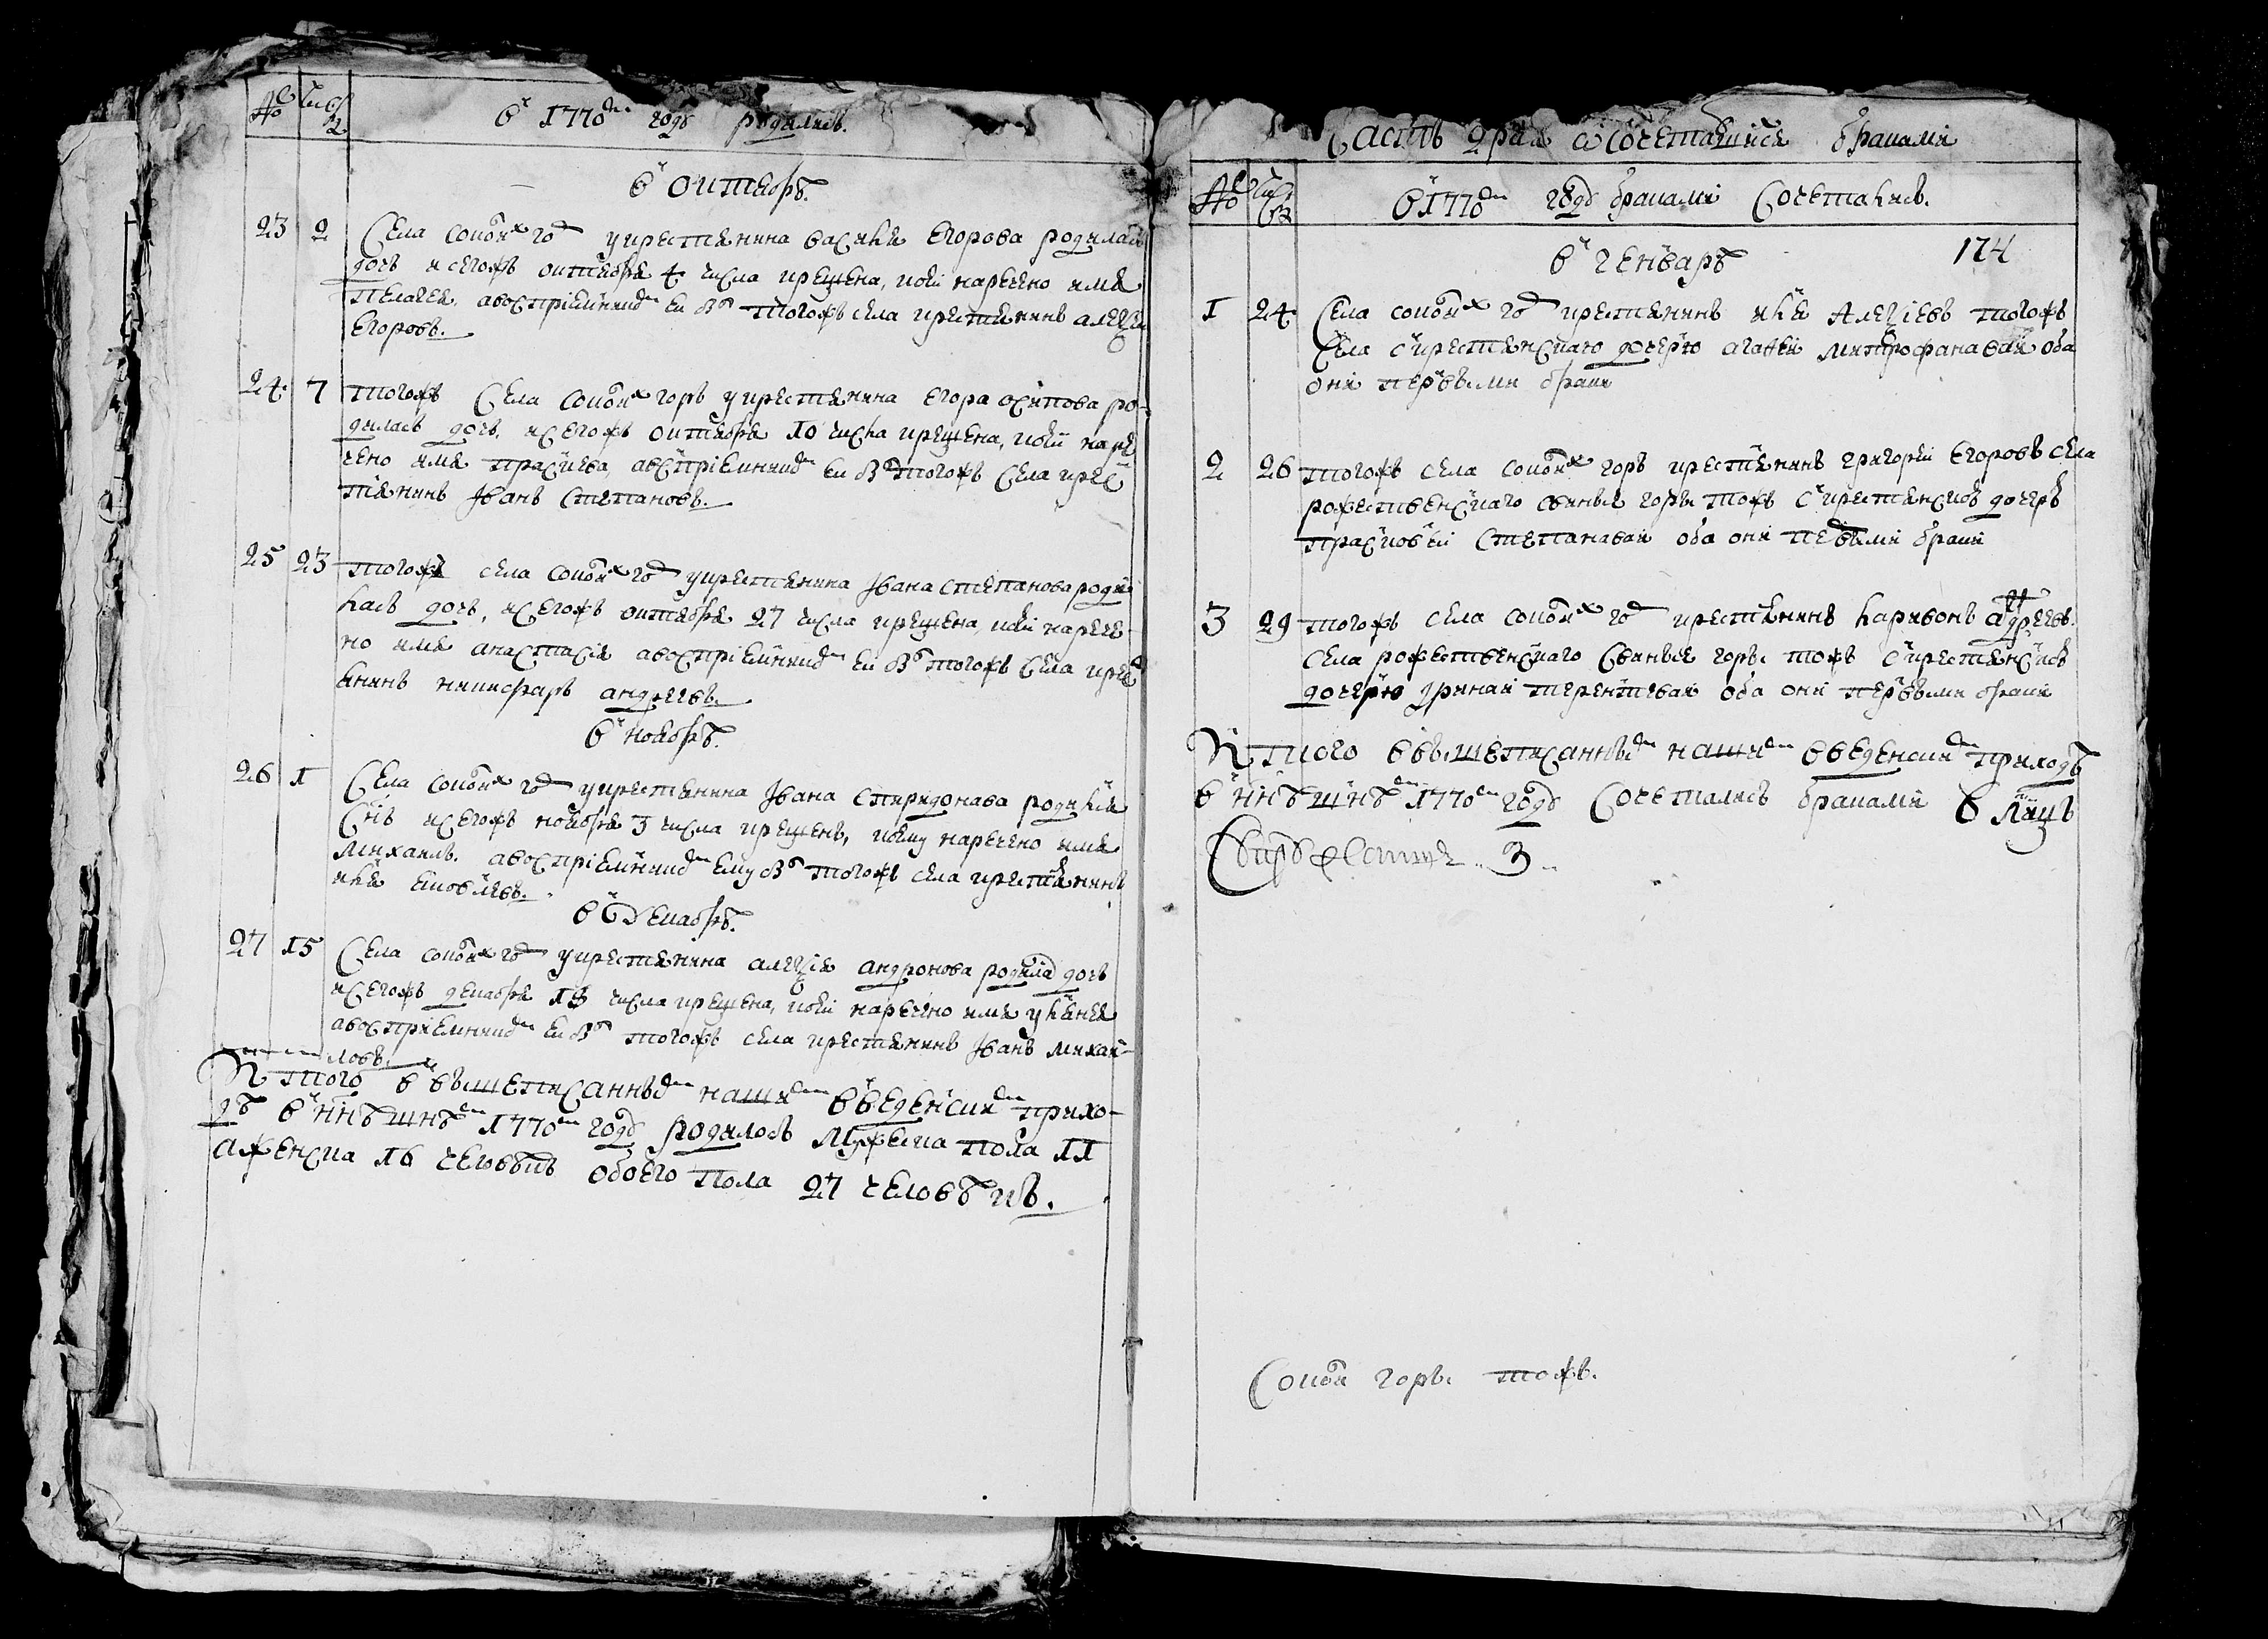 № Числа
В 1770м годе родились.
В октябре.
23 2 Села Соко гор у крестянина василья Егорова родилась
дочь и сегожъ октября 4 числа крещена, коей наречено имя
пелагея, а воспрiемникомъ ей былъ тогожъ села крестянинъ алеѯей
Егоровъ.
24 7 тогожъ Села Соко горъ у крестянина Егора осипова ро-
дилась дочь, и сегожъ октября 10 числа крещена, коей наре
чено имя праскева, а воспрiемникомъ ей былъ тогожъ Села крес
тянинъ Iванъ Степановъ.
25 23 тогожъ села Соко гор у крестянина Iвана степанова роди
лась дочь, и сегожъ октября 27 числа крещена, коей нарече-
но имя анастасiя а воспрiемникомъ ей былъ тогожъ села крест
янинъ никифаръ андреевъ.
В ноябре.
26 1 Села Соко гор у крестянина Iвана спиридонава родился
снъ и сегожъ ноября 3 числа крещенъ, коему наречено имя
михаилъ. а воспрiемникомъ ему былъ тогожъ села крестянинъ
илья яковлевъ.
В декабре.
27 15 Села Соко гор у крестянина алеѯiя андронова родилась дочь
и сегожъ декабря 18 числа крещена, коей наречено имя ульянея
а воспрiемникомъ ей былъ тогожъ села крестянинъ Iванъ михай-
ловъ.
Итого в вышеписанномъ нашемъ введенскомъ прихо-
де в ннешнемъ 1770м годе родилось мужеска пола 11
а женска 16 человекъ обоего пола 27 человекъ.
Часть 2рая ѡ сочетавшихся браками
№ Числа
В 1770м годе браками Сочетались.
174
В генваре
1 24 Села соко гор крестянинъ илья Алеѯiевъ тогожъ
Села с крестянскаю дочерью агафей митрофанавай оба
они первымъ браком
2 26 тогожъ села соко горъ крестянинъ григорей Егоровъ села
рожественскаго свиньи горы тожъ с крестянской дочерью
прасковьей Степанавай оба они первымъ браком
3 29 тогожъ села соко гор крестянинъ ларивонъ андреевъ.
села рожественскаго Свиньи горы тожъ с крестянской
дочерью Iринай терентевай оба они первымъ браком
Итого в вышеписанномъ нашемъ введенскомъ приходе
в ннешнемъ 1770м годе Сочетались браками 6 лицъ
3
Соко горы тожъ.